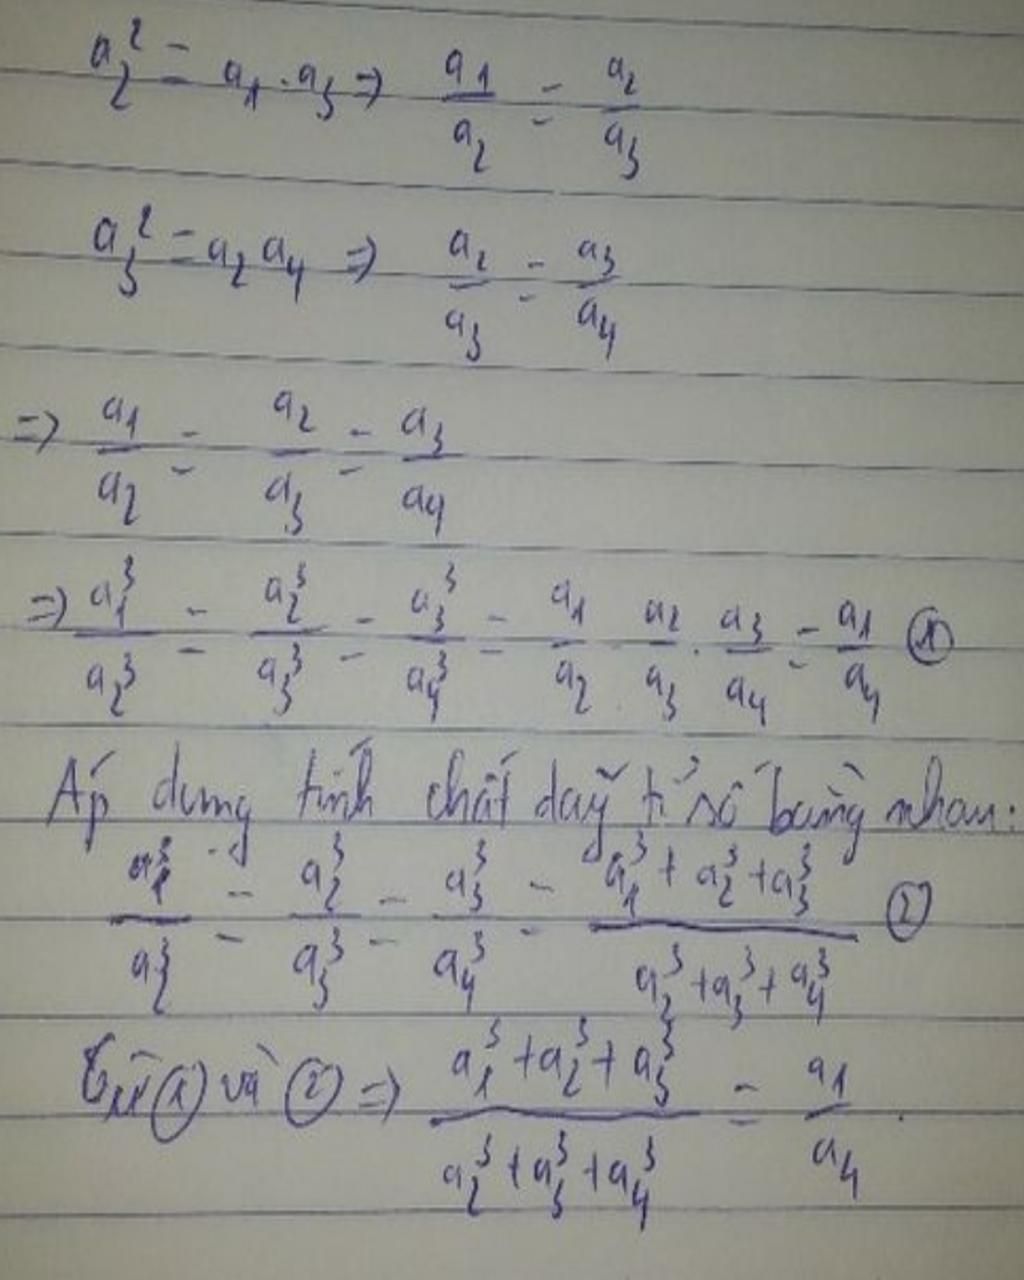 a₂² = a₁ . a₃ => a₁/a₂ = a₂/a₃
a₃² = a₂ a₄ => a₂/a₃ = a₃/a₄
=> a₁/a₂ = a₂/a₃ = a₃/a₄
=> a₁³/a₂³ = a₂³/a₃³ = a₃³/a₄³ = a₁/a₂ . a₂/a₃ . a₃/a₄ = a₁/a₄ ①
Áp dụng tính chất dãy tỉ số bằng nhau:
a₁³/a₂³ = a₂³/a₃³ = a₃³/a₄³ = (a₁³ + a₂³ + a₃³)/(a₂³ + a₃³ + a₄³) ②
Từ ① và ② => (a₁³ + a₂³ + a₃³)/(a₂³ + a₃³ + a₄³) = a₁/a₄ .